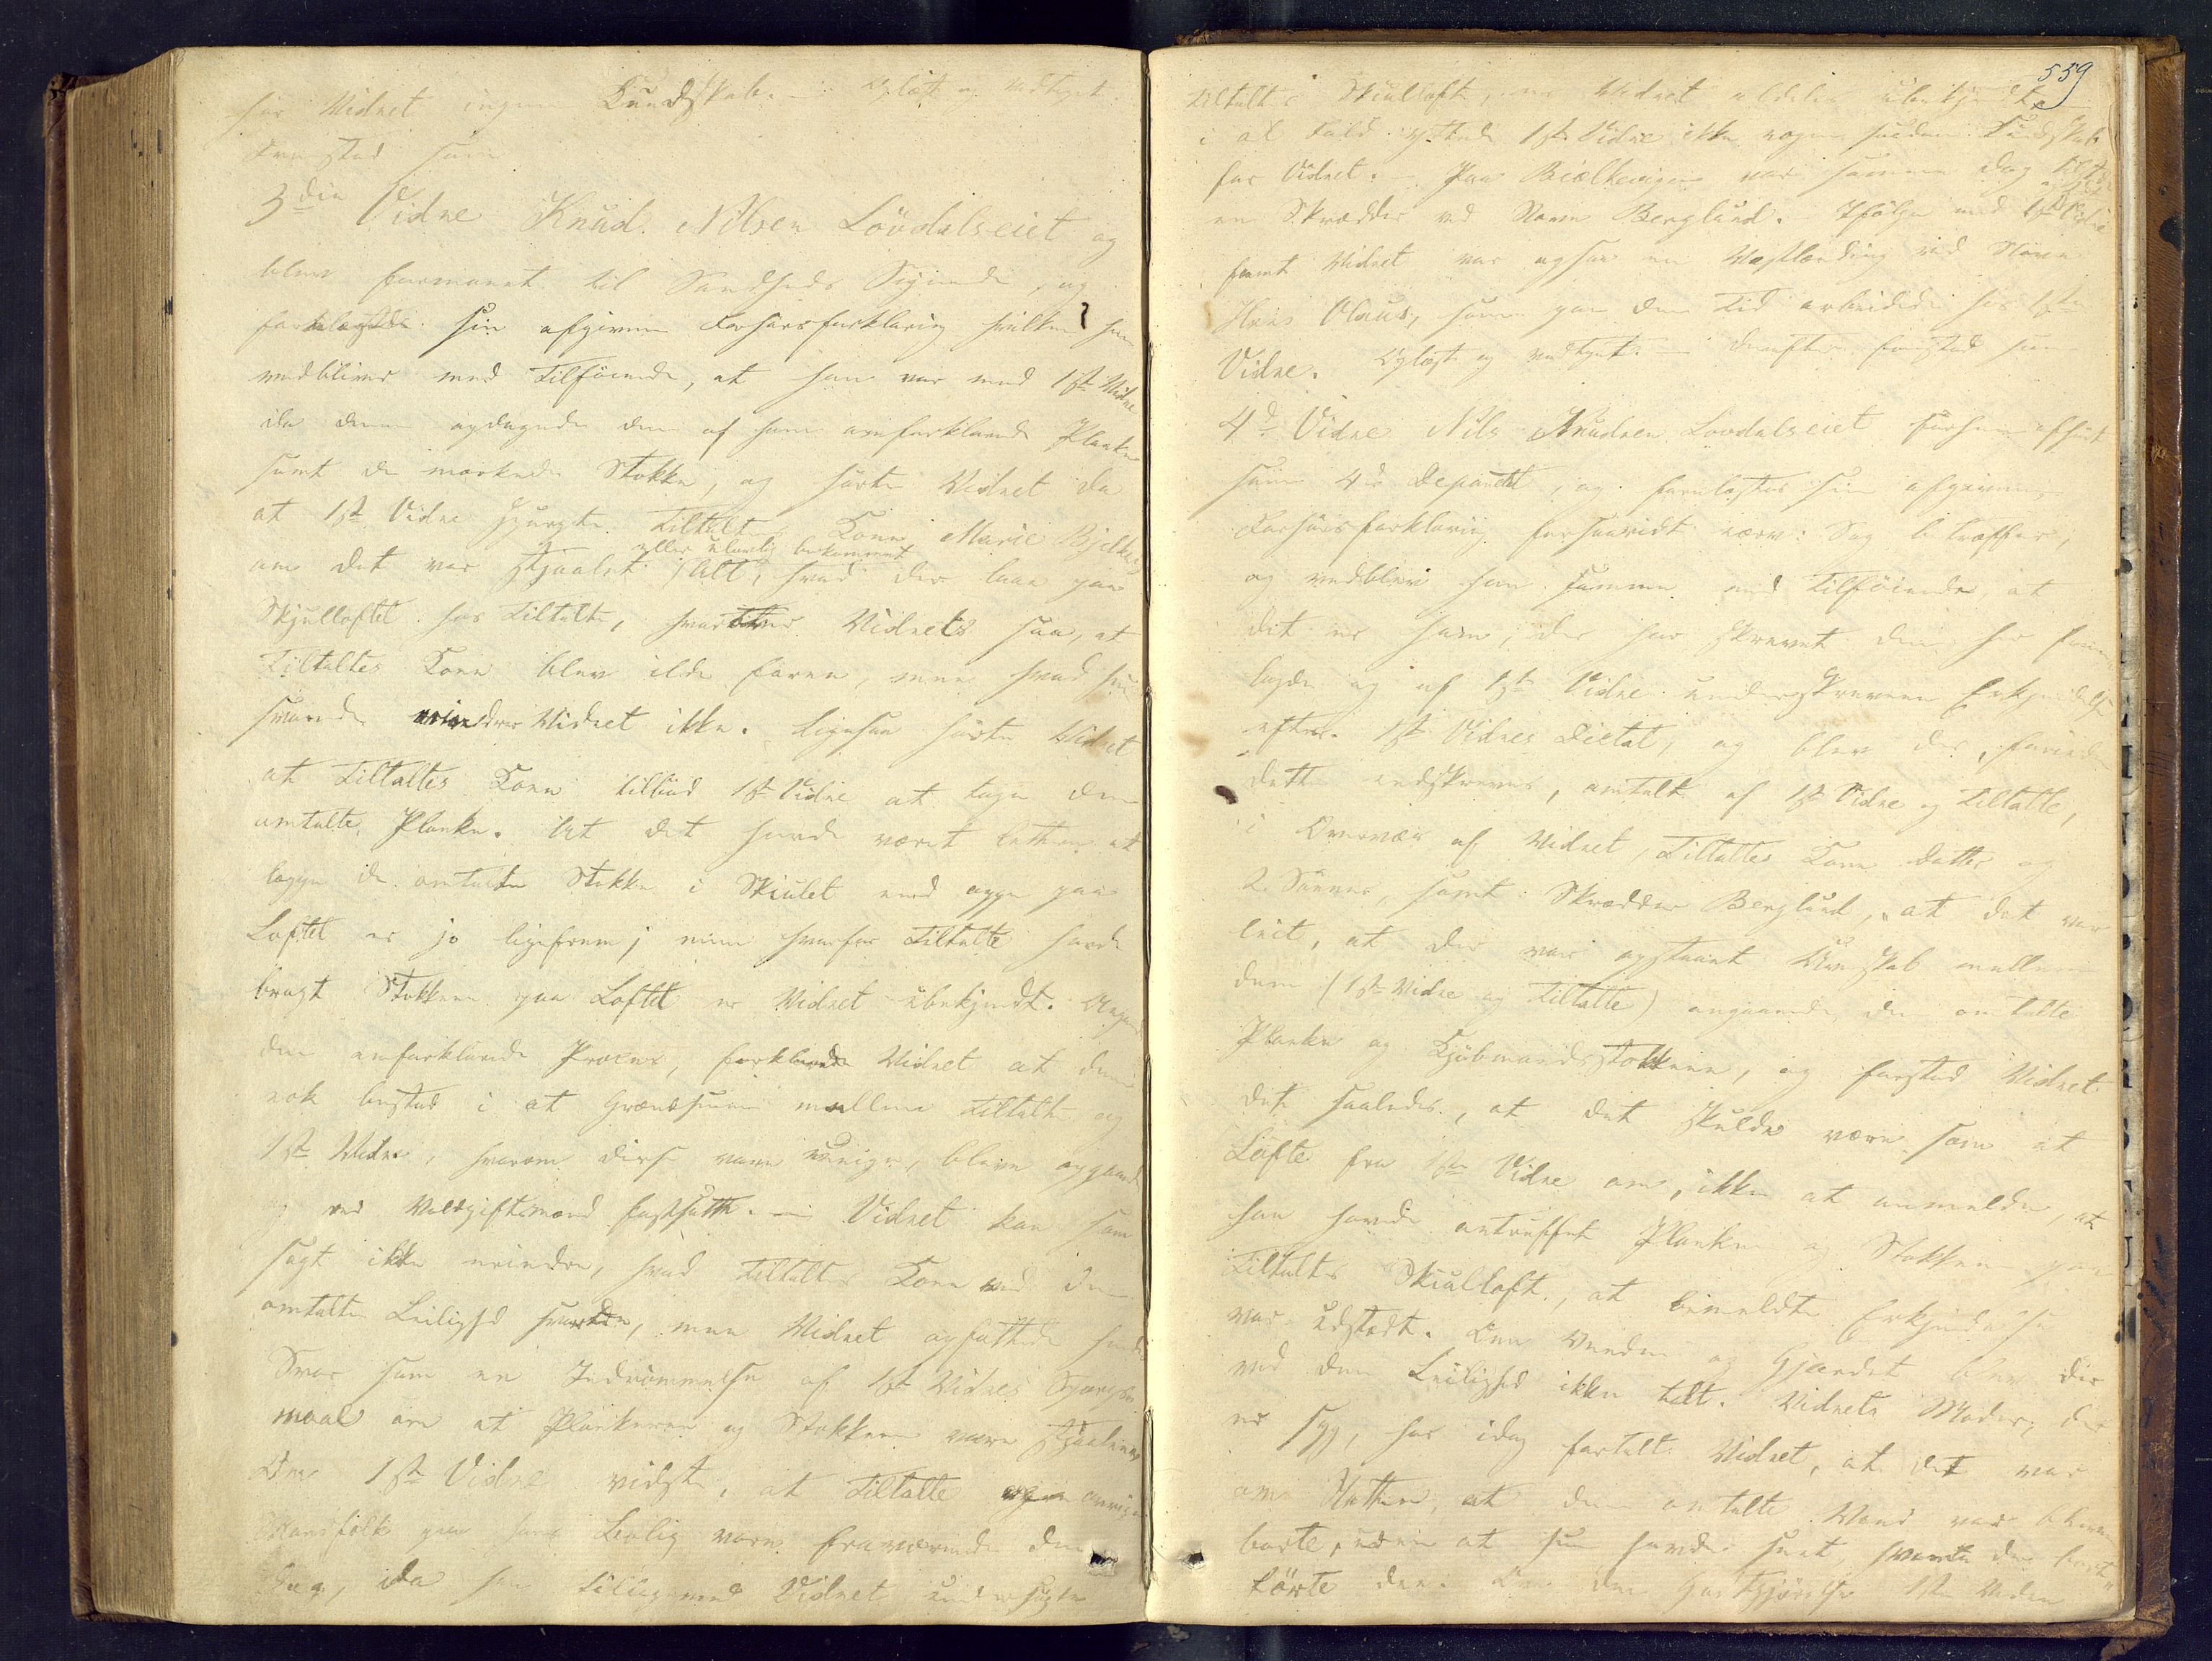 har Vidnet ingen Kundskab. — Oplæst og vedtaget.
Fremstod som
3die Vidne Knud Nilsen Løvdalseiet og
blev formanet til Sandheds Sigende, og
forelæstes sin afgivne Forhørsforklaring hvilken han
vedbliver med Tilføiende, at han var med 1ste Vidne
da denne opdagede den af ham omforklarede Planke
samt de mærkede Stokke, og hørte Vidnet da
at 1ste Vidne spurgte Tiltaltes Kone Marie Bjelke
eller ulovlig bekommet
om det var stjaalet Alt, hvad der laae paa
Skjulloftet hos Tiltalte, hvorefter Vidnet saa, at
Tiltaltes Kone blev ilde faren, men hvad hun
svarede erindrer Vidnet ikke. Ligesaa hørte Vidnet
at Tiltaltes Kone tilbød 1ste Vidne at tage den
omtalte Planke. At det havde været lettere at
lægge de omtalte Stokke i Skiulet end oppe paa
Loftet er jo ligefrem; men hvorfor Tiltalte havde
bragt Stokkene paa Loftet er Vidnet ubekjendt. Angaaende
den omforklarede Proces, forklarede Vidnet at den
nok bestod i at Grændserne mellem Tiltalte og
1ste Vidne, hvorom disse vare uenige, bleve opgaaede
og ved Voldgiftsmænd fastsatte. — Vidnet kan som
sagt ikke erindre, hvad Tiltaltes Kone ved den
omtalte Leilighed svarede, men Vidnet opfattede hendes
Svar som en Indrømmelse af 1ste Vidnes Spørgs-
maal om at Plankerne og Stokkene vare stjaalne.
Om 1ste Vidne vidste, at Tiltalte og øvrige
Mandfolk paa hans Bolig vare fraværende den
Dag, da han tilligemed Vidnet undersøgte
559
Tiltaltes Skiulloft, er Vidnet aldeles ubekjendt,
i al Fald yttrede 1ste Vidne ikke nogen saadan Kundskab
for Vidnet. — Paa Bielkevigen var samme Dag
en Skrædder ved Navn Berglund. Ifølge med 1ste Vidne
samt Vidnet var ogsaa en Vestlænding ved Navn
Hans Olaus, som paa den Tid arbeidede hos 1ste
Vidne. Oplæst og vedtaget. — Derefter fremstod som
4de Vidne Nils Knudsen Lövdalseiet forhen afhørt
som 4de Deponent, og forelæstes sin afgivne
Forhørsforklaring forsaavidt nærv: Sag betræffer,
og vedblev han samme med Tilføiende, at
det er ham, der har skrevet den her frem-
lagde og af 1ste Vidne underskrevne Erkjendelse
efter 1ste Vidnes Dictat, og blev der, førend
dette nedskreves, omtalt af 1ste Vidne og Tiltalte,
i Overvær af Vidnet, Tiltaltes Kone Datter og
2 Sønner, samt Skrædder Berglund, at det var
leit, at der var opstaaet Uvenskab mellem
dem (1ste Vidne og Tiltalte) angaaende den omtalte
Planke og Kjøbmandsstokkene, og forstod Vidnet
det saaledes, at det skulde være som et
Løfte fra 1ste Vidne om, ikke at anmelde, at
han havde antruffet Planken og Stokken paa
Tiltaltes Skiulloft, at bemeldte Erkjendelse
var udstædt. Om Veden og Gjærdet blev der
ved den Leilighed ikke talt. Vidnets Moder, der
er syg, har idag fortalt Vidnet, at det var
om Natten, at den omtalte Vand var bleven
borte, uden at hun havde seet, hvem der bort-
førte den. Om den Godtgjørelse 1ste Vidne